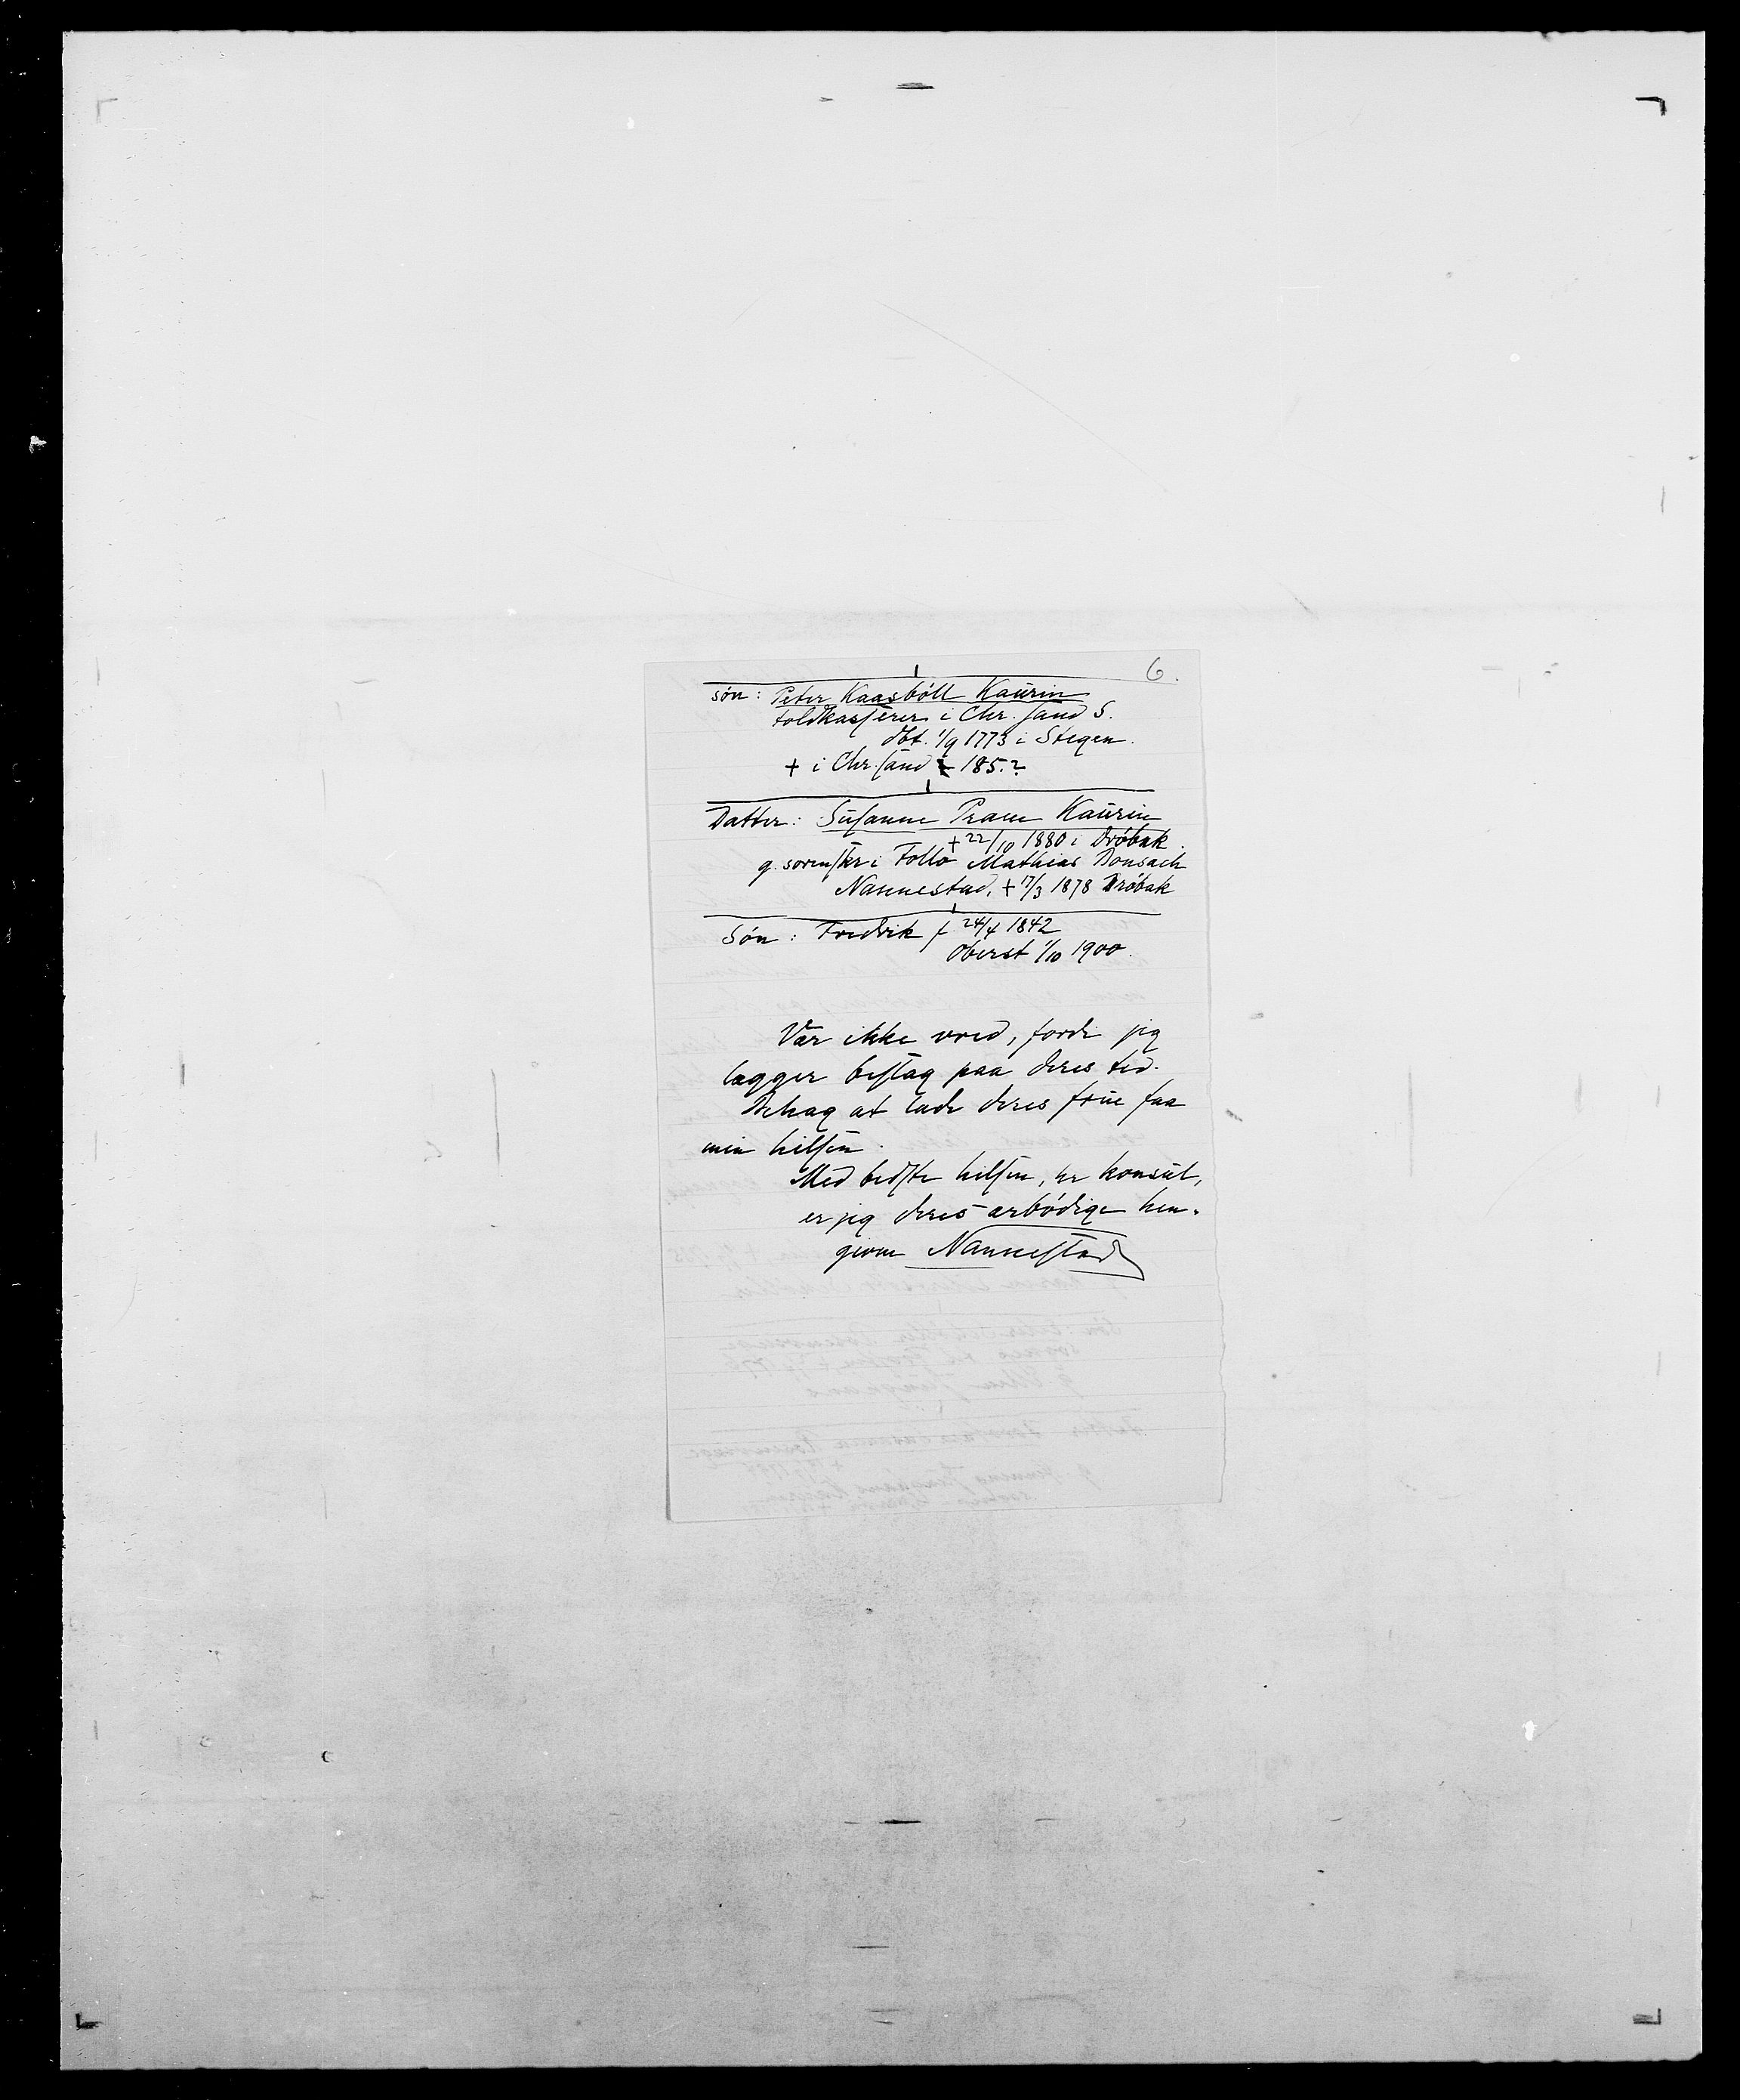 6.
Søn: Peter Kaasböll Kaurin
toldkasserer i Chr.sand S.
dbt. 1/9 1773 i Stegen.
+ i Chr.sand 185.?
Datter: Susanne Pram Kaurin
+ 22/10 1880 i Dröbak.
g. sorenskr i Follo Mathias Bonsach
Nannestad, + 17/3 1878 Dröbak
Sön: Fredrik f 24/4 1842
Oberst 1/10 1900.
Vær ikke vred, fordi jeg
lægger beslag paa deres tid.
Behag at lade deres frue faa
min hilsen.
Med bedste hilsen, hr konsul,
er jeg deres ærbödige hen-
givne Nannestad